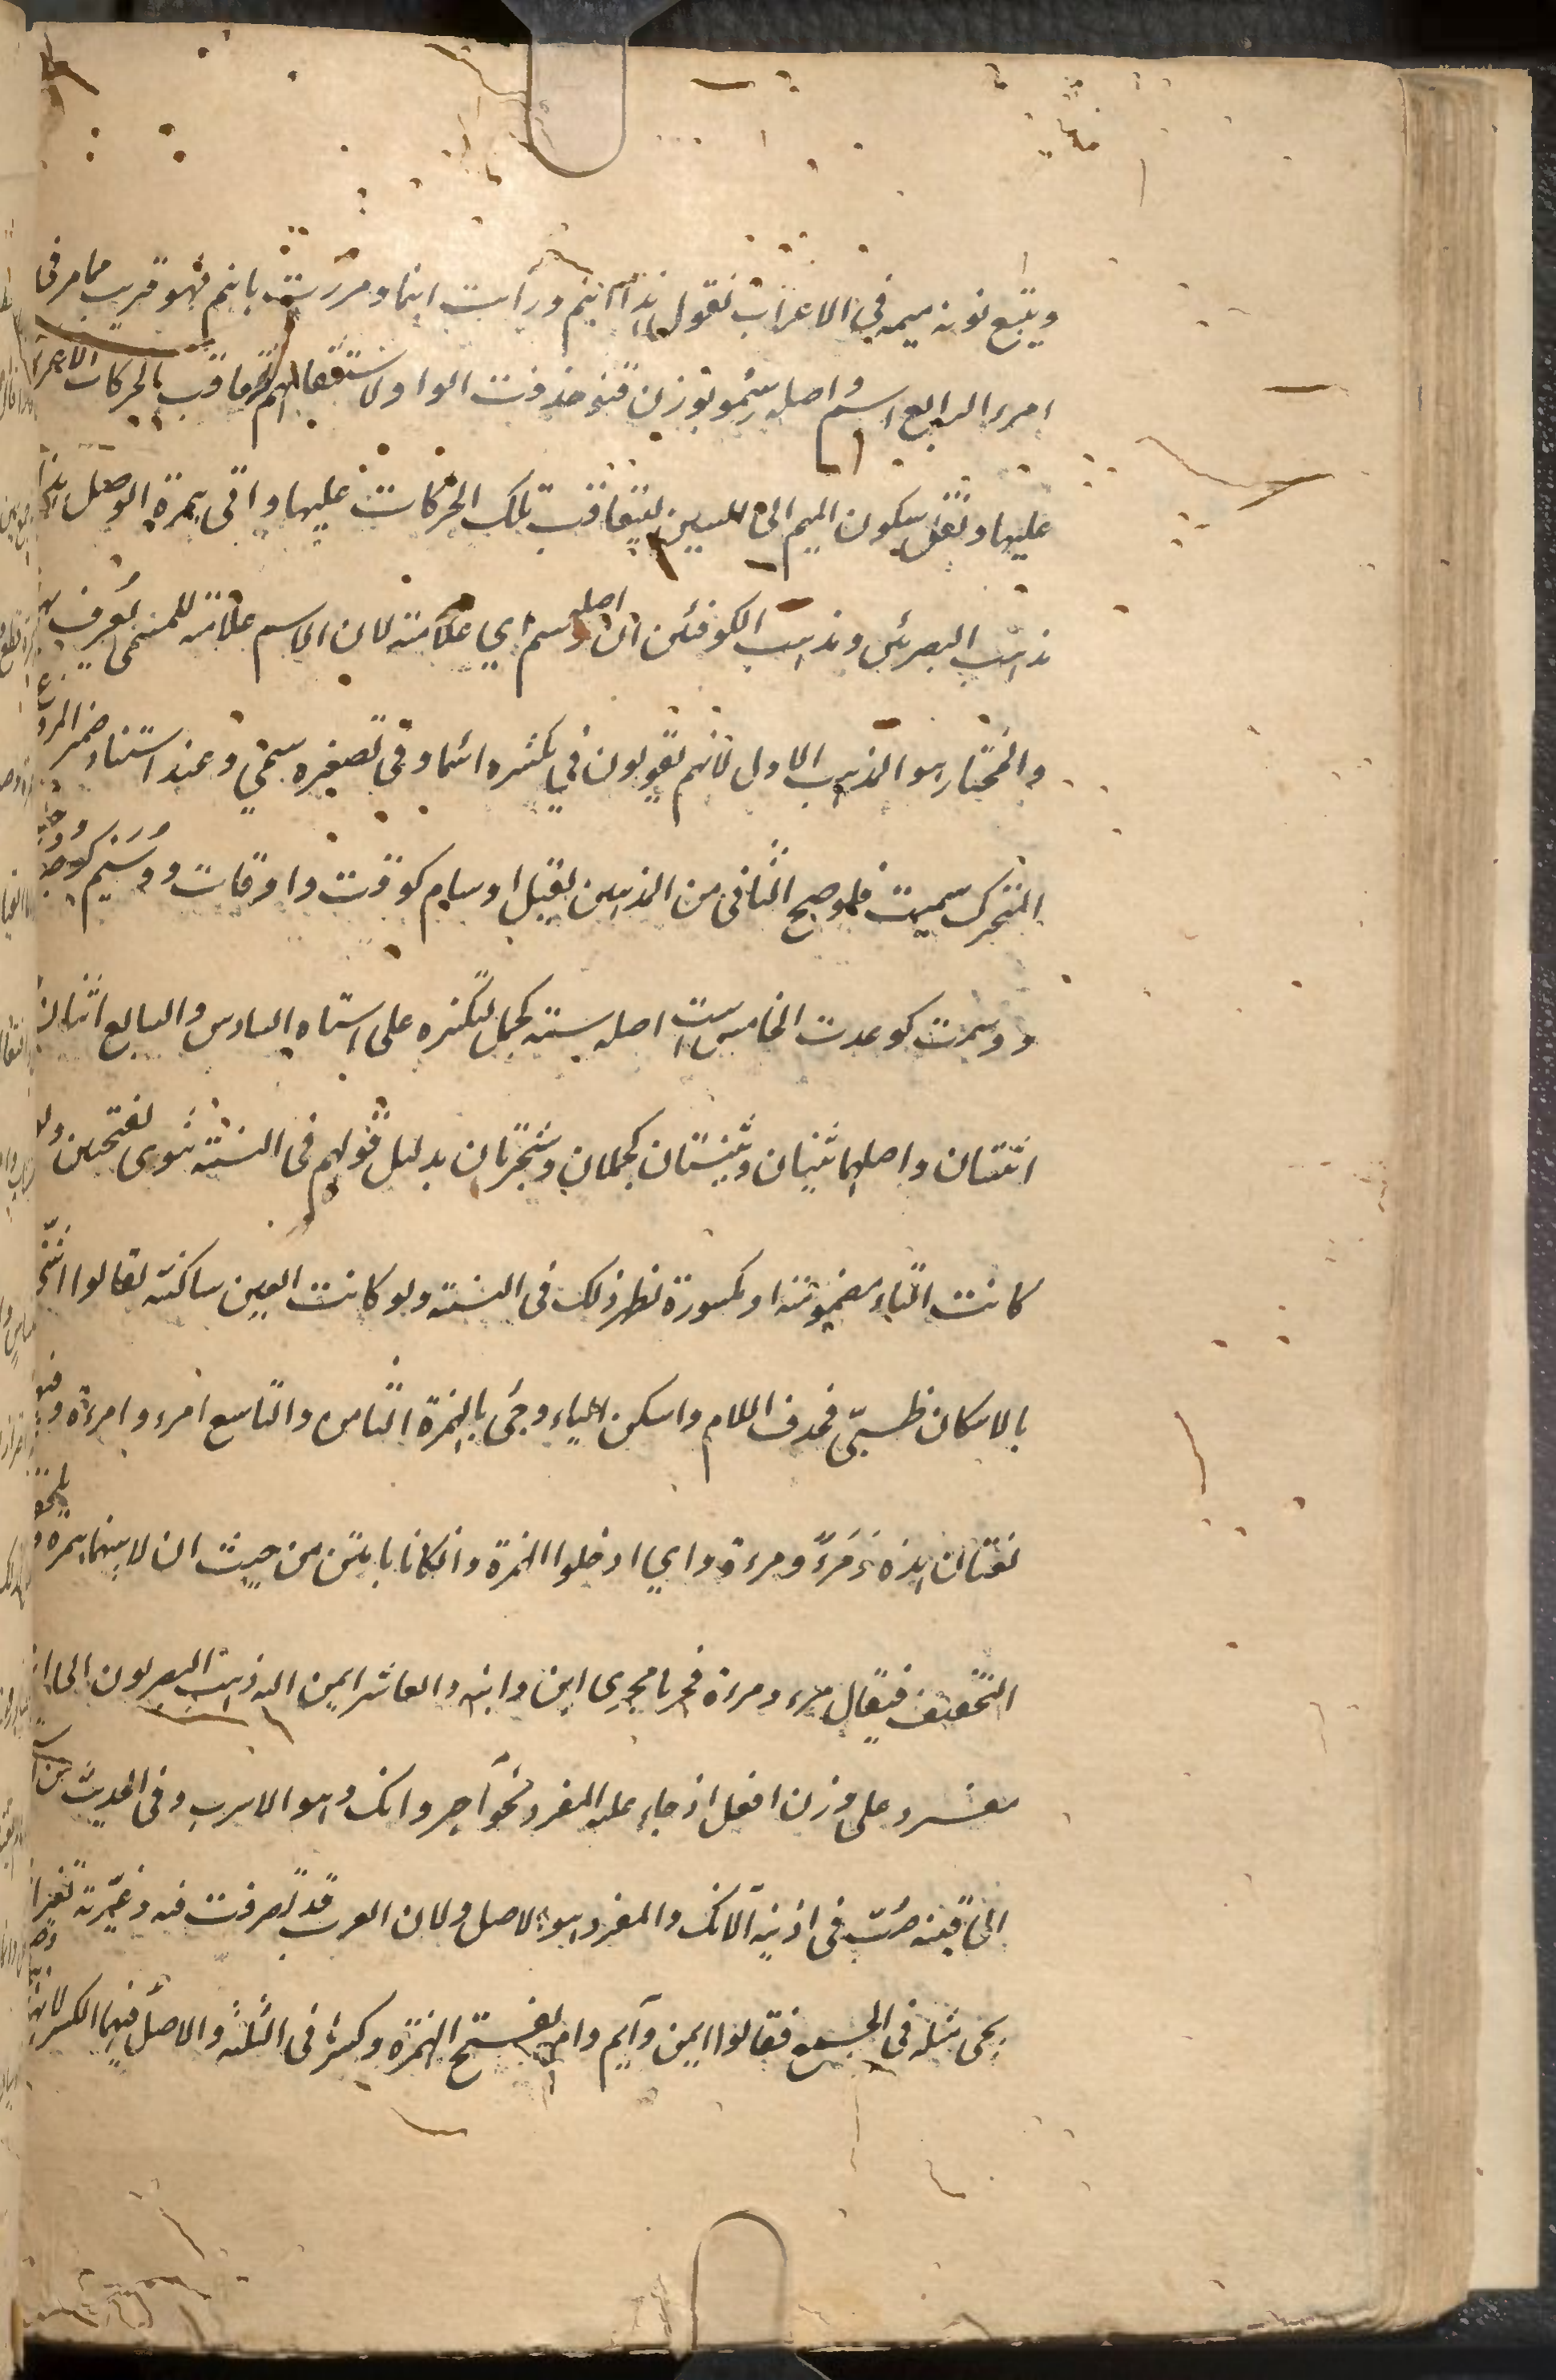 ويتبع نونه ميمه في الاعراب تقول هذا ابنم ورأيت ابنما ومررت بابنم فهو قريب مما مر في
امرء الرابع اسم واصله سمو بوزن قنو حذفت الواو لاستثقالهم تعاقب الحركات الاعرا
عليها ونقل سكون الميم الى السين ليتعاقب تلك الحركات عليها واتى بهمزة الوصل هذا
مذهب البصريين ومذهب الكوفيين ان اصله وسم اي علامة لان الاسم علامة للمسمى يعرف به
والمختار هو المذهب الاول لانهم يقولون في تكثيره اسماء وفي تصغيره سمي وعند اسناد ضمير المرفوع
المتحرك سميت فلو صح الثاني من المذهبين لقيل اوسام كوقت واوقات ووسيم كوجيه
ووسمت كوعدت الخامس است اصله سته كجمل لتكثيره على استاه السادس والسابع اثنان
اثنتان واصلهما ثنيان وثنيتان كجملان وشجرتان بدليل قولهم في النسبة ثنوى بفتحتين ولو
كانت الثاء مضمومة او مكسورة لظهر ذلك في النسبة ولو كانت العين ساكنة لقالوا اثني
بالاسكان ظبيّ فحذف اللام واسكن الثاء وجئ بالهمزة الثامن والتاسع امرء وامرءة وفيها
لغتان هذه ومرء ومرءة واي ادخلوا الهمزة وان كانا تامين من حيث ان لاميهما همزة و يلحقها
التخفيف فيقال مر ومرة فجريا مجرى ابن وابنة والعاشر ايمن الله ذهب البصريون الى انه
مفرد على وزن افعل اذ جاء عليه المفرد نحو آجر وانك وهو الاسرب وفي الحديث من استمع
الى قينة صُبّ في اذنيه الآنك والمفرد هو الاصل ولان العرب قد تصرفت فيه وغيرته تغييرا
يجى مثله في الجمع فقالوا ايمن وايم وام بفتح الهمزة وكسرها في الثلثة والاصل فيهما الكسر لانها